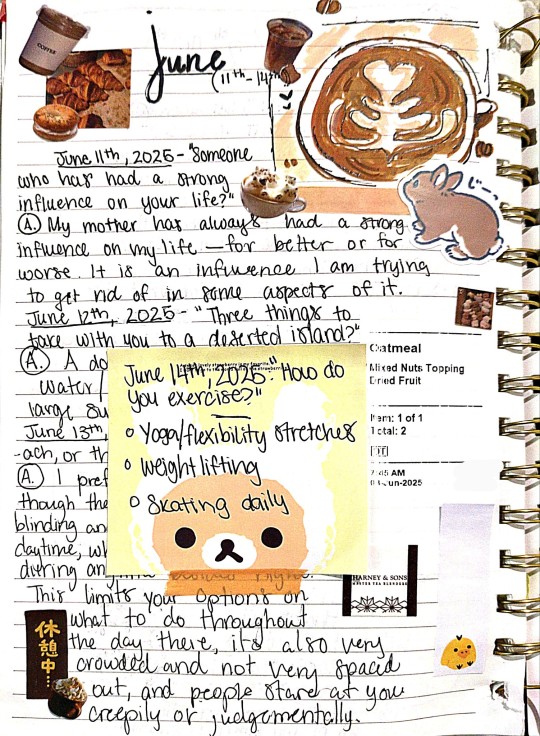 COFFEE
june
(11th-14th)
June 11th, 2025 - "Someone
who has had a strong
influence on your life?"
A. My mother has always had a strong
influence on my life — for better or for
worse. It is an influence I am trying
to get rid of in some aspects of it.
June 12th, 2025 - "Three things to
take with you to a deserted island?"
A. A do
water
large su
June 13th,
-ach, or th
A. I pref
though the
blinding an
daytime, wh
diering an
This limits your options on
what to do throughout
the day there, it's also very
crowded and not very spaced
out, and people stare at you
creepily or judgementally.
June 14th, 2025: "How do
you exercise?"
o Yoga/flexibility stretches
o weightlifting
o Skating daily
Oatmeal
Mixed Nuts Topping
Dried Fruit
Item: 1 of 1
Total: 2
AM
Jun-2025
HARNEY & SONS
MASTER TEA BLENDERS
じーっ
休憩中…